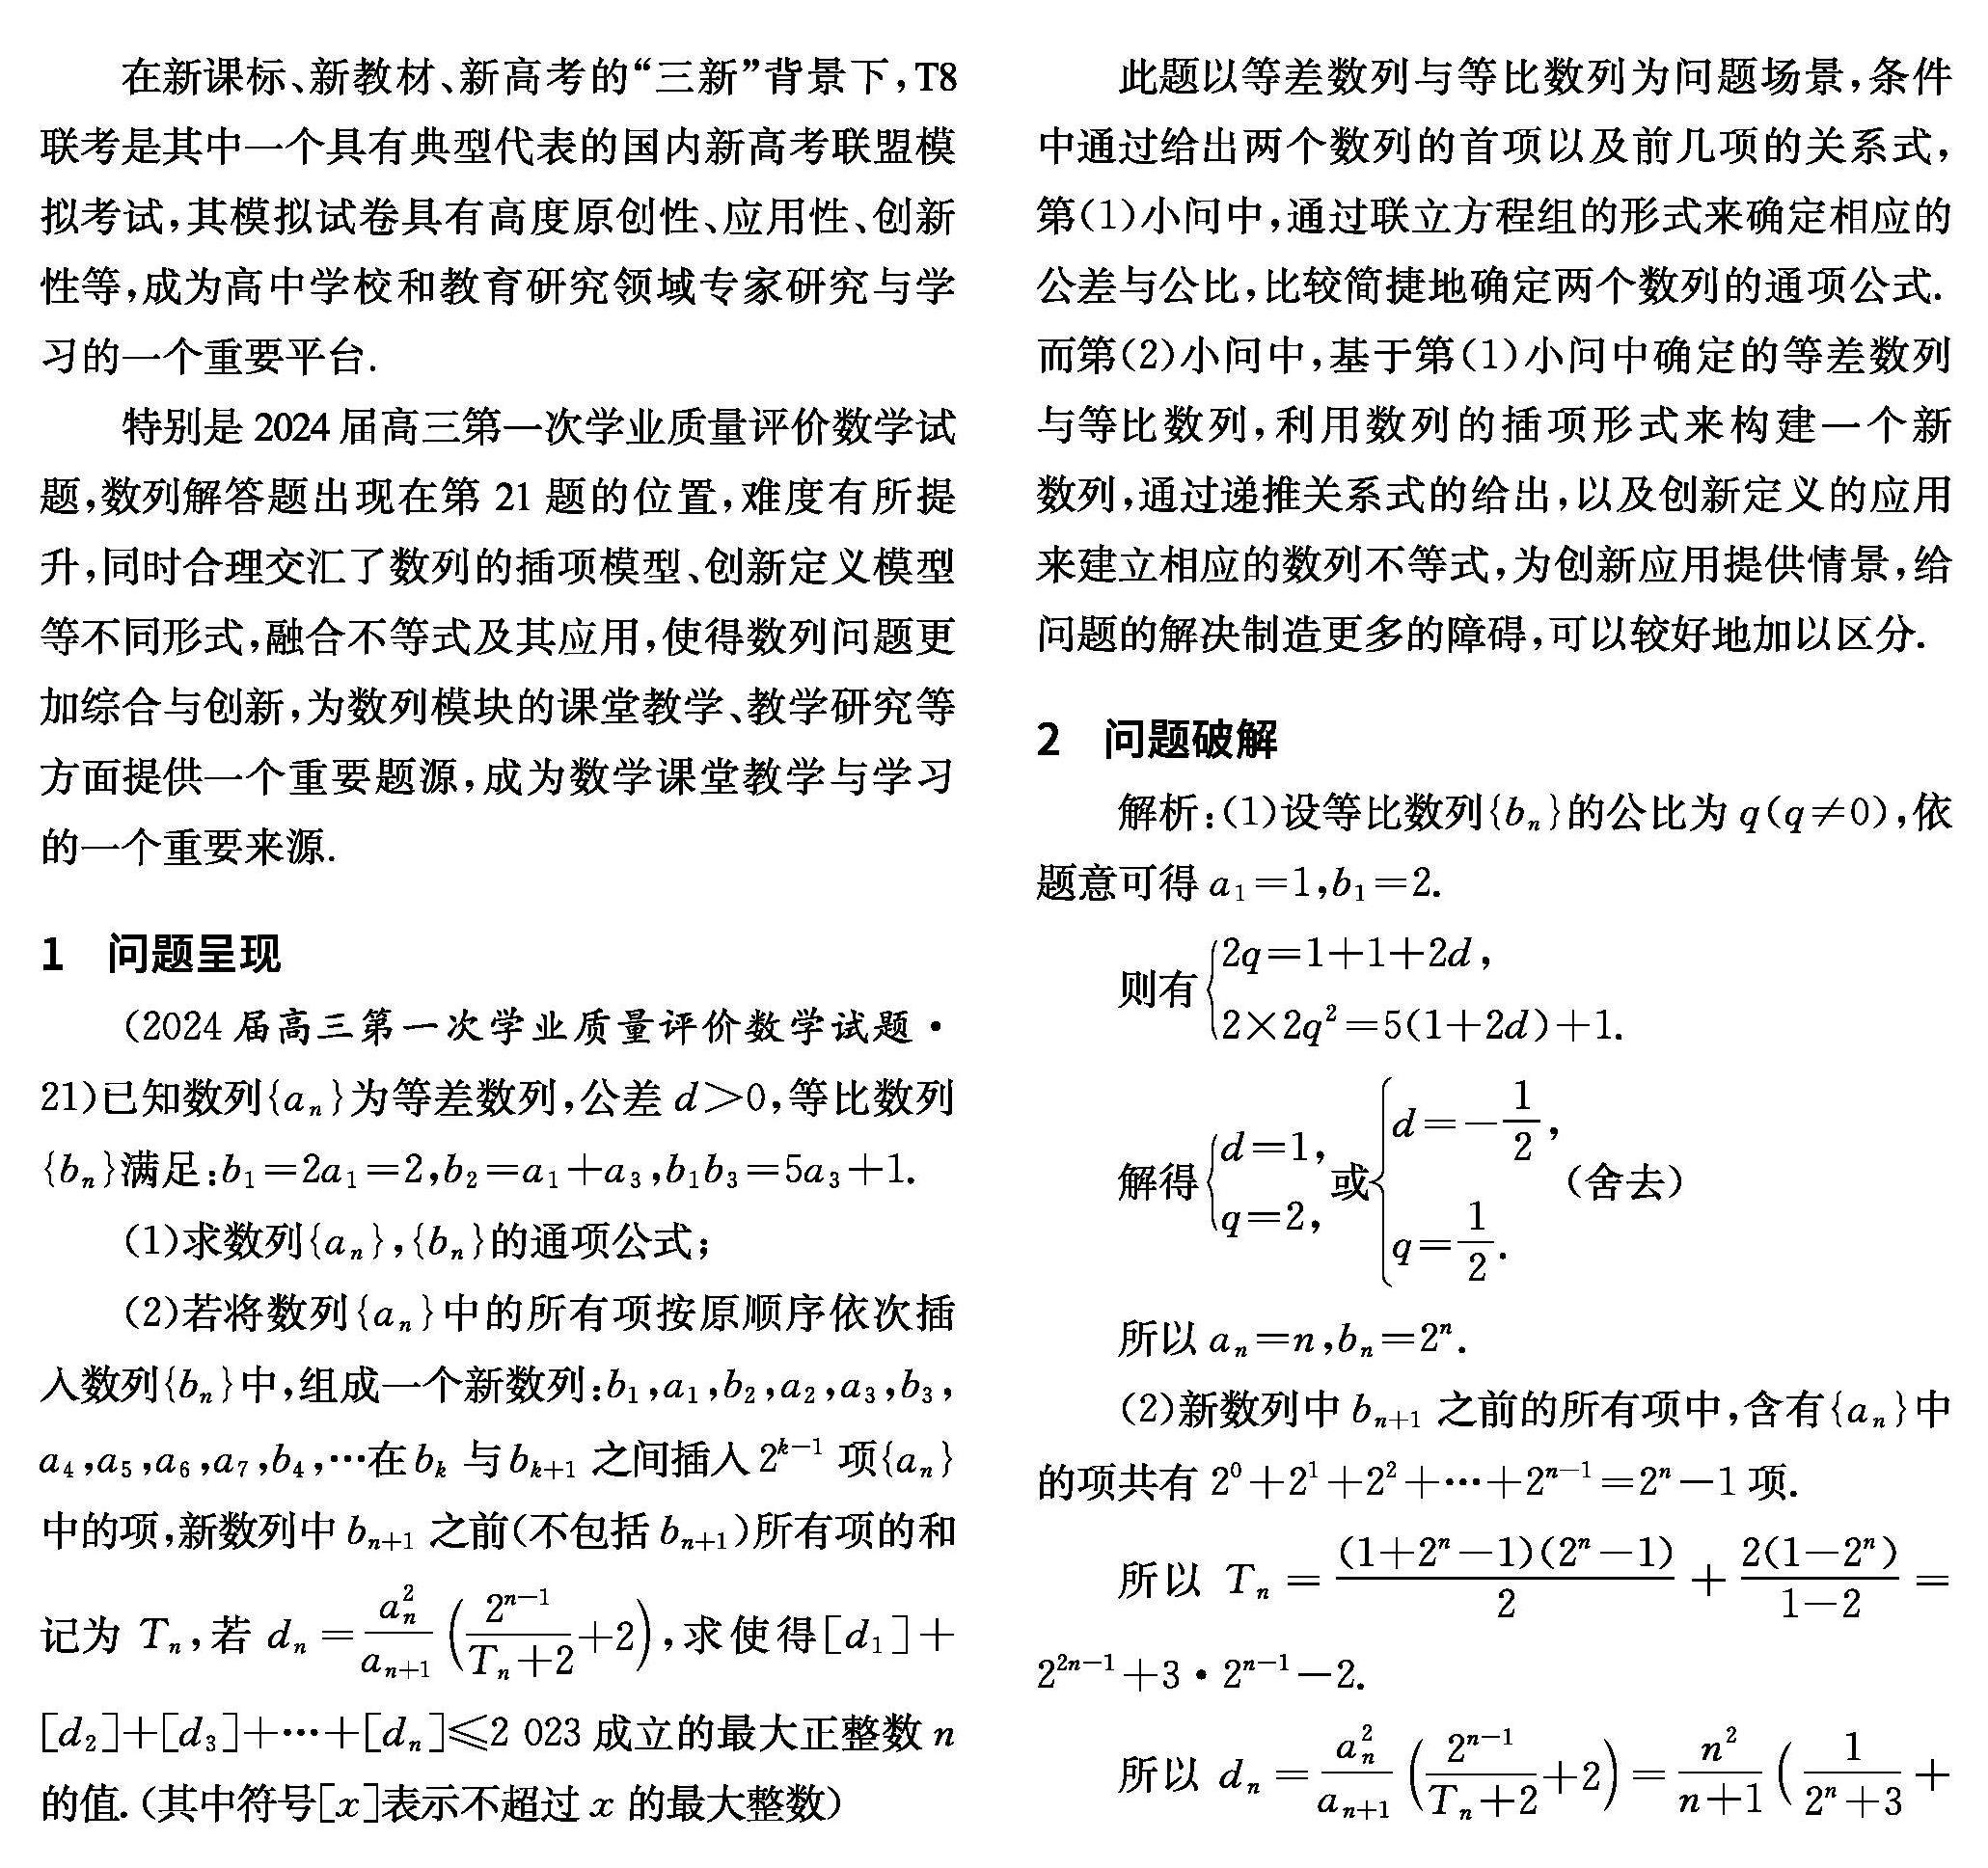 在新课标、新教材、新高考的“三新”背景下,T8
联考是其中一个具有典型代表的国内新高考联盟模
拟考试,其模拟试卷具有高度原创性、应用性、创新
性等,成为高中学校和教育研究领域专家研究与学
习的一个重要平台.
特别是 2024 届高三第一次学业质量评价数学试
题,数列解答题出现在第 21 题的位置,难度有所提
升,同时合理交汇了数列的插项模型、创新定义模型
等不同形式,融合不等式及其应用,使得数列问题更
加综合与创新,为数列模块的课堂教学、教学研究等
方面提供一个重要题源,成为数学课堂教学与学习
的一个重要来源.
1 问题呈现
(2024 届高三第一次学业质量评价数学试题·
21)已知数列{aₙ}为等差数列,公差 d>0,等比数列
{bₙ}满足:b₁=2a₁=2,b₂=a₁+a₃,b₁b₃=5a₃+1.
(1)求数列{aₙ},{bₙ}的通项公式;
(2)若将数列{aₙ}中的所有项按原顺序依次插
入数列{bₙ}中,组成一个新数列:b₁,a₁,b₂,a₂,a₃,b₃,
a₄,a₅,a₆,a₇,b₄,…在 bₖ 与 bₖ₊₁ 之间插入 2ᵏ⁻¹ 项{aₙ}
中的项,新数列中 bₙ₊₁ 之前(不包括 bₙ₊₁)所有项的和
记为 Tₙ,若 dₙ=aₙ²/aₙ₊₁(2ⁿ⁻¹/(Tₙ+2)+2),求使得[d₁]+
[d₂]+[d₃]+…+[dₙ]≤2 023 成立的最大正整数 n
的值.(其中符号[x]表示不超过 x 的最大整数)
此题以等差数列与等比数列为问题场景,条件
中通过给出两个数列的首项以及前几项的关系式,
第(1)小问中,通过联立方程组的形式来确定相应的
公差与公比,比较简捷地确定两个数列的通项公式.
而第(2)小问中,基于第(1)小问中确定的等差数列
与等比数列,利用数列的插项形式来构建一个新
数列,通过递推关系式的给出,以及创新定义的应用
来建立相应的数列不等式,为创新应用提供情景,给
问题的解决制造更多的障碍,可以较好地加以区分.
2 问题破解
解析:(1)设等比数列{bₙ}的公比为 q(q≠0),依
题意可得 a₁=1,b₁=2.
则有{2q=1+1+2d,
2×2q²=5(1+2d)+1.
解得{d=1, q=2,或{d=-1/2, q=1/2.(舍去)
所以 aₙ=n,bₙ=2ⁿ.
(2)新数列中 bₙ₊₁ 之前的所有项中,含有{aₙ}中
的项共有 2⁰+2¹+2²+…+2ⁿ⁻¹=2ⁿ-1 项.
所以 Tₙ=(1+2ⁿ-1)(2ⁿ-1)/2+2(1-2ⁿ)/(1-2)=
2²ⁿ⁻¹+3·2ⁿ⁻¹-2.
所以 dₙ=aₙ²/aₙ₊₁(2ⁿ⁻¹/(Tₙ+2)+2)=n²/(n+1)(1/(2ⁿ+3)+